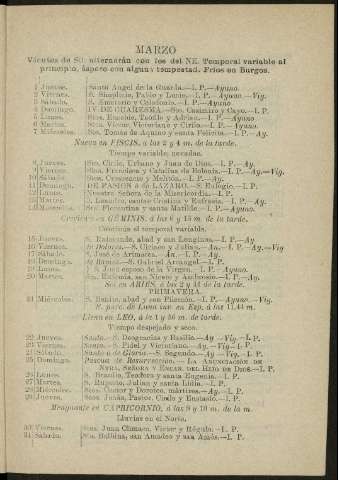 MARZO
Vientos de SO. alternarán con los del NE. Temporal variable al
principio, áspero con alguna tempestad. Fríos en Burgos.
1 Jueves. Santo Angel de la Guarda.—I. P.—Ayuno.
2 Viernes. S. Simplicio, Pablo y Lucio.—I. P.—Ayuno.—Vig.
3 Sábado. S. Emeterio y Celedonio.—I. P.—Ayuno
4 Domingo. IV DE CUARESMA.—Stos. Casimiro y Cayo.—I. P.
5 Lunes. Stos. Eusebio, Teófilo y Adrián.—I. P.—Ayuno
6 Martes. Stos. Víctor, Victoriano y Cirilo.—I. P.—Ayuno
7 Miércoles. Sto. Tomás de Aquino y santa Felícita.—I. P.—Ay.
Nueva en PISCIS, á las 2 y 4 m. de la tarde.
Tiempo variable; nevadas.
8 Jueves. Stos. Cirilo, Urbano y Juan de Dios.—I. P.—Ay.
9 Viernes. Stas. Francisca y Catalina de Bolonia.—I. P.—Ay.—Vig.
10 Sábado. Stos. Crescencio y Melitón.—I. P.—Ay.
11 Domingo. DE PASIÓN ó de LÁZARO.—S. Eulogio.—I. P.
12 Lunes. Nuestra Señora de la Misericordia.—I. P.
13 Martes. S. Leandro, santas Cristina y Eufrasia.—I. P.—Ay.
14 Miércoles. Stas. Florentina y santa Matilde.—I. P.—Ayuno.
Creciente en GÉMINIS, á las 6 y 15 m. de la tarde.
Continúa el temporal variable.
15 Jueves. S. Raimundo, abad y san Longinos.—I. P.—Ay.
16 Viernes. De Dolores.—S. Ciriaco y Julián.—An.—I. P.—Ay.—Vig
17 Sábado. S. José de Arimatea.—An.—I. P.—Ay.
18 Domingo. de Ramos.—S. Gabriel Arcángel.—An.—I. P.
19 Lunes. S. José esposo de la Virgen.—I. P.—Ayuno.
20 Martes. Sta. Eufemia, san Niceto y Ambrosio.—I. P.—Ay.
Sol en ARIES, á las 2 y 14 de la tarde.
PRIMAVERA.
21 Miércoles. S. Benito, abad y san Filemón.—I. P.—Ayuno.—Vig.
E. parc. de Luna inv. en Esp. á las 11,41 m.
Llena en LEO, á la 1 y 56 m. de tarde.
Tiempo despejado y seco.
22 Jueves. Santo.—S. Deogracias y Basilio.—Ay—Vig.—I. P.
23 Viernes. Santo.—S. Fidel y Victoriano.—Ay.—Vig.—I. P.
24 Sábado. Santo ó de Gloria.—S. Segundo.—Ay —Vig.—I. P.
25 Domingo. Pascua de Resurrección.—LA ANUNCIACIÓN DE
NTRA. SEÑORA Y ENCAR. DEL HIJO DE DIOS.—I. P.
26 Lunes. S. Braulio, Teodoro y santa Eugenia.—I. P.
27 Martes. S. Ruperto, Julián y santa Lidia.—I. P.
28 Miércoles. Stos. Cástor y Doroteo, mártires.—Ay.—I. P.
29 Jueves. Stos. Jonás, Pastor, Cirilo y Eustasio.—I. P.
Menguante en CAPRICORNIO, á las 8 y 10 m. de la m.
Lluvias en el Norte.
30 Viernes. Stos. Juan Clímaco, Víctor y Régulo.—I. P.
31 Sábado. Sta. Balbina, san Amadeo y san Amós.—I. P.